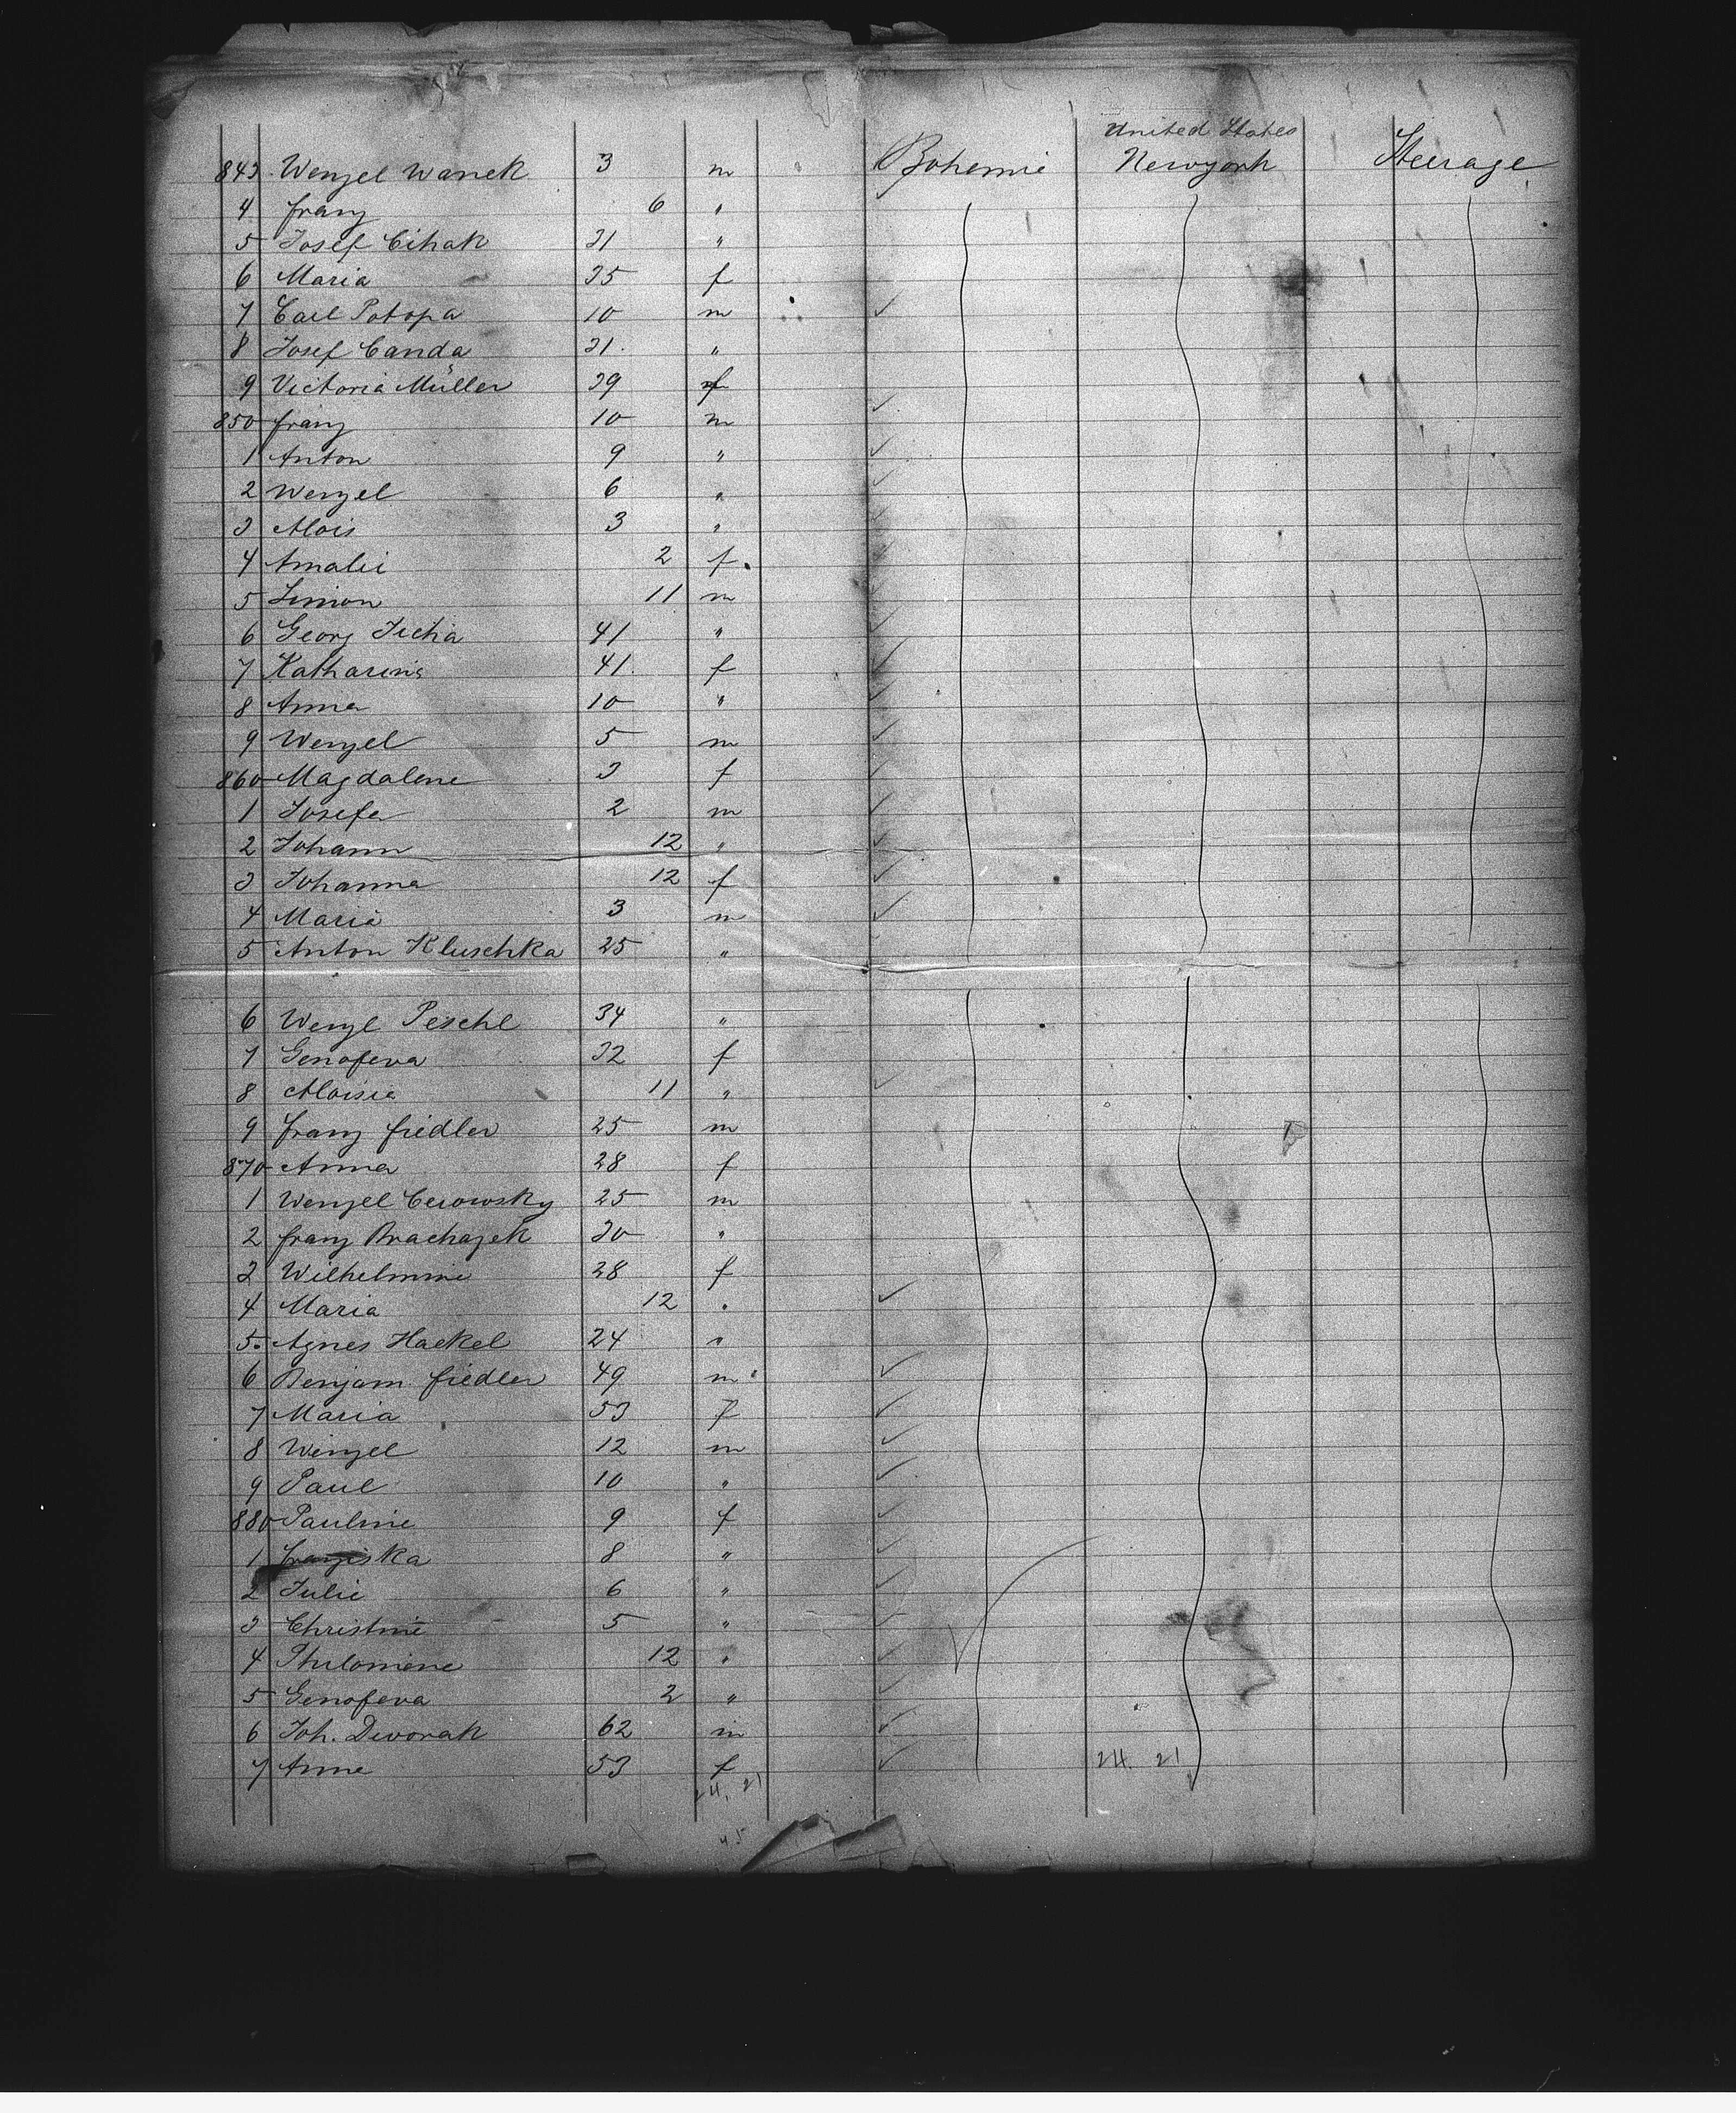 United States
843 Wenzel Wanek 3 m Bohemie Newyork Steerage
4 Franz 6 "
5 Josef Cihak 31 "
6 Maria 35 f
7 Carl Potopa 10 m
8 Josef Canda 31 "
9 Victoria Müller 39 f
850 Franz 10 m
1 Anton 9 "
2 Wenzel 6 "
3 Alois 3 "
4 Amalie 2 f
5 Simon 11 m
6 Georg 41 "
7 Katharina 41 f
8 Anna 10 "
9 Wenzel 5 m
860 Magdalene 3 f
1 Josefa 2 m
2 Johann 12 "
3 Johanna 12 f
4 Maria 3 m
5 Anton Kluschka 25 "
6 Wenzl Peschl 34 "
7 Genofeva 32 f
8 Aloisia 11 "
9 Franz Fiedler 25 m
870 Anna 28 f
1 Wenzel Cerowsky 25 m
2 Franz Brachazek 30 "
3 Wilhelmine 28 f
4 Maria 12 "
5 Agnes Hackel 24 "
6 Benjam. Fiedler 49 m
7 Maria 53 f
8 Wenzel 12 m
9 Paul 10 "
880 Pauline 9 f
1 Franziska 8 "
2 Julie 6 "
3 Christine 5 "
4 Philomene 12 "
5 Genofeva 2 "
6 Joh. Dworak 62 m
7 Anne 53 f 24. 21
24. 21
45